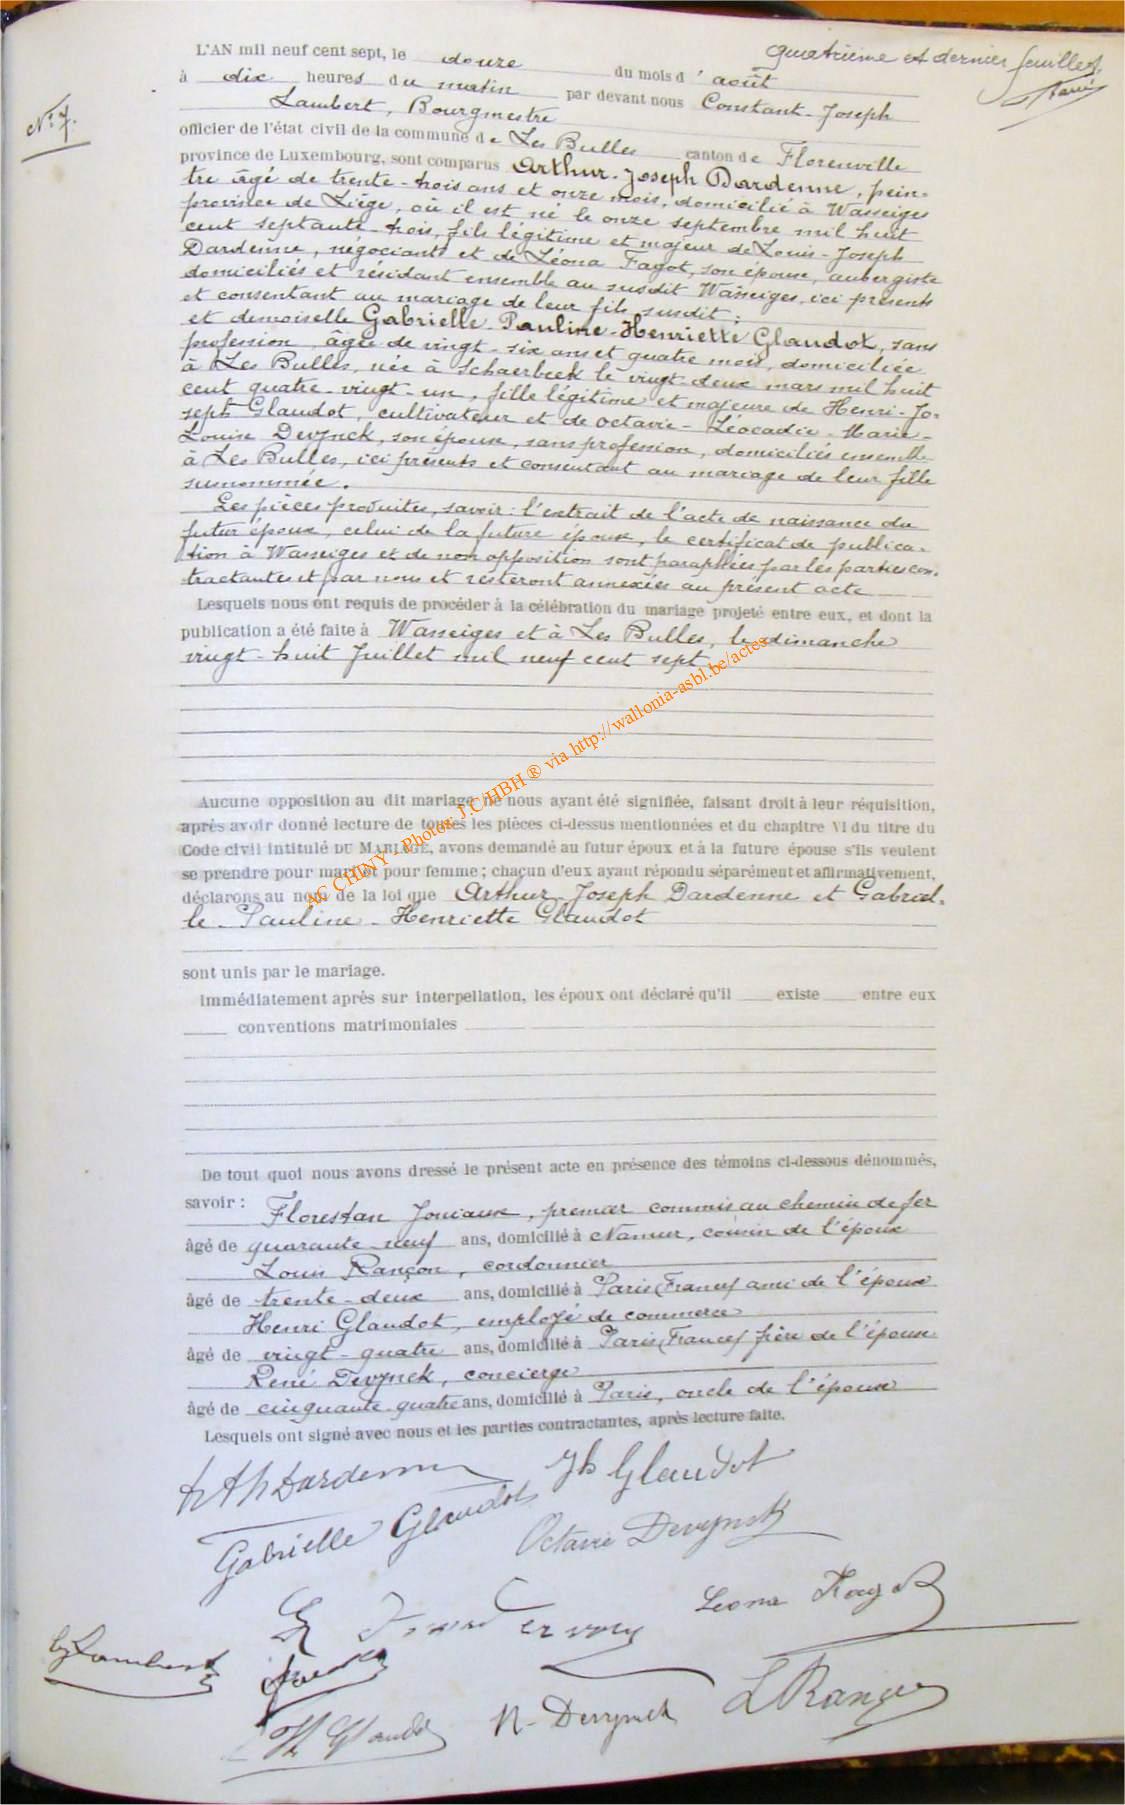 quatrième et dernier feuillet.
N° 7.
L'AN mil neuf cent sept, le douze du mois d'août
à dix heures du matin par devant nous Constant-Joseph
Lambert, Bourgmestre
officier de l'état civil de la commune de Les Bulles canton de Florenville
province de Luxembourg, sont comparus Arthur-Joseph Dardenne, pein-
tre âgé de trente-trois ans et onze mois, domicilié à Wasseiges
province de Liège, où il est né le onze septembre mil huit
cent septante-trois, fils légitime et majeur de Louis-Joseph
Dardenne, négociant et de Léona Fagot, son épouse, aubergiste
domiciliés et résidant ensemble au susdit Wasseiges, ici présents
et consentant au mariage de leur fils susdit;
et demoiselle Gabrielle-Pauline-Henriette Glaudot, sans
profession, âgée de vingt-six ans et quatre mois, domiciliée
à Les Bulles, née à Schaerbeek le vingt-deux mars mil huit
cent quatre-vingt-un, fille légitime et majeure de Henri-Jo-
seph Glaudot, cultivateur et de Octavie-Léocadie-Marie-
Louise Devynck, son épouse, sans profession, domiciliés ensemble
à Les Bulles, ici présents et consentant au mariage de leur fille
surnommée.
Les pièces produites, savoir: l'extrait de l'acte de naissance du
futur époux, celui de la future épouse, le certificat de publica-
tion à Wasseiges et de non opposition sont paraphées par les parties con-
tractantes et par nous et resteront annexées au présent acte
Lesquels nous ont requis de procéder à la célébration du mariage projeté entre eux, et dont la
publication a été faite à Wasseiges et à Les Bulles, le dimanche
vingt-huit Juillet mil neuf cent sept
Aucune opposition au dit mariage ne nous ayant été signifiée, faisant droit à leur réquisition,
après avoir donné lecture de toutes les pièces ci-dessus mentionnées et du chapitre VI du titre du
Code civil intitulé DU MARIAGE, avons demandé au futur époux et à la future épouse s'ils veulent
se prendre pour mari et pour femme; chacun d'eux ayant répondu séparément et affirmativement,
déclarons au nom de la loi que Arthur-Joseph Dardenne et Gabriel-
le-Pauline-Henriette Glaudot
sont unis par le mariage.
Immédiatement après sur interpellation, les époux ont déclaré qu'il existe entre eux
conventions matrimoniales
De tout quoi nous avons dressé le présent acte en présence des témoins ci-dessous dénommés,
savoir: Florestan Joniaux, premier commis au chemin de fer
âgé de quarante-neuf ans, domicilié à Namur, cousin de l'époux
Louis Rançon, cordonnier
âgé de trente-deux ans, domicilié à Paris (France) ami de l'époux
Henri Glaudot, employé de commerce
âgé de vingt-quatre ans, domicilié à Paris (France) frère de l'épouse
René Devynck, concierge
âgé de cinquante-quatre ans, domicilié à Paris, oncle de l'épouse
Lesquels ont signé avec nous et les parties contractantes, après lecture faite.
Dardenne Glaudot
Gabrielle Glaudot Octavie Devynck
Léona Fagot
Lambert
Glaudot R. Devynck L Rançon
AC CHINY - Photos J.C/HBH ® via http://wallonia-asbl.be/actes